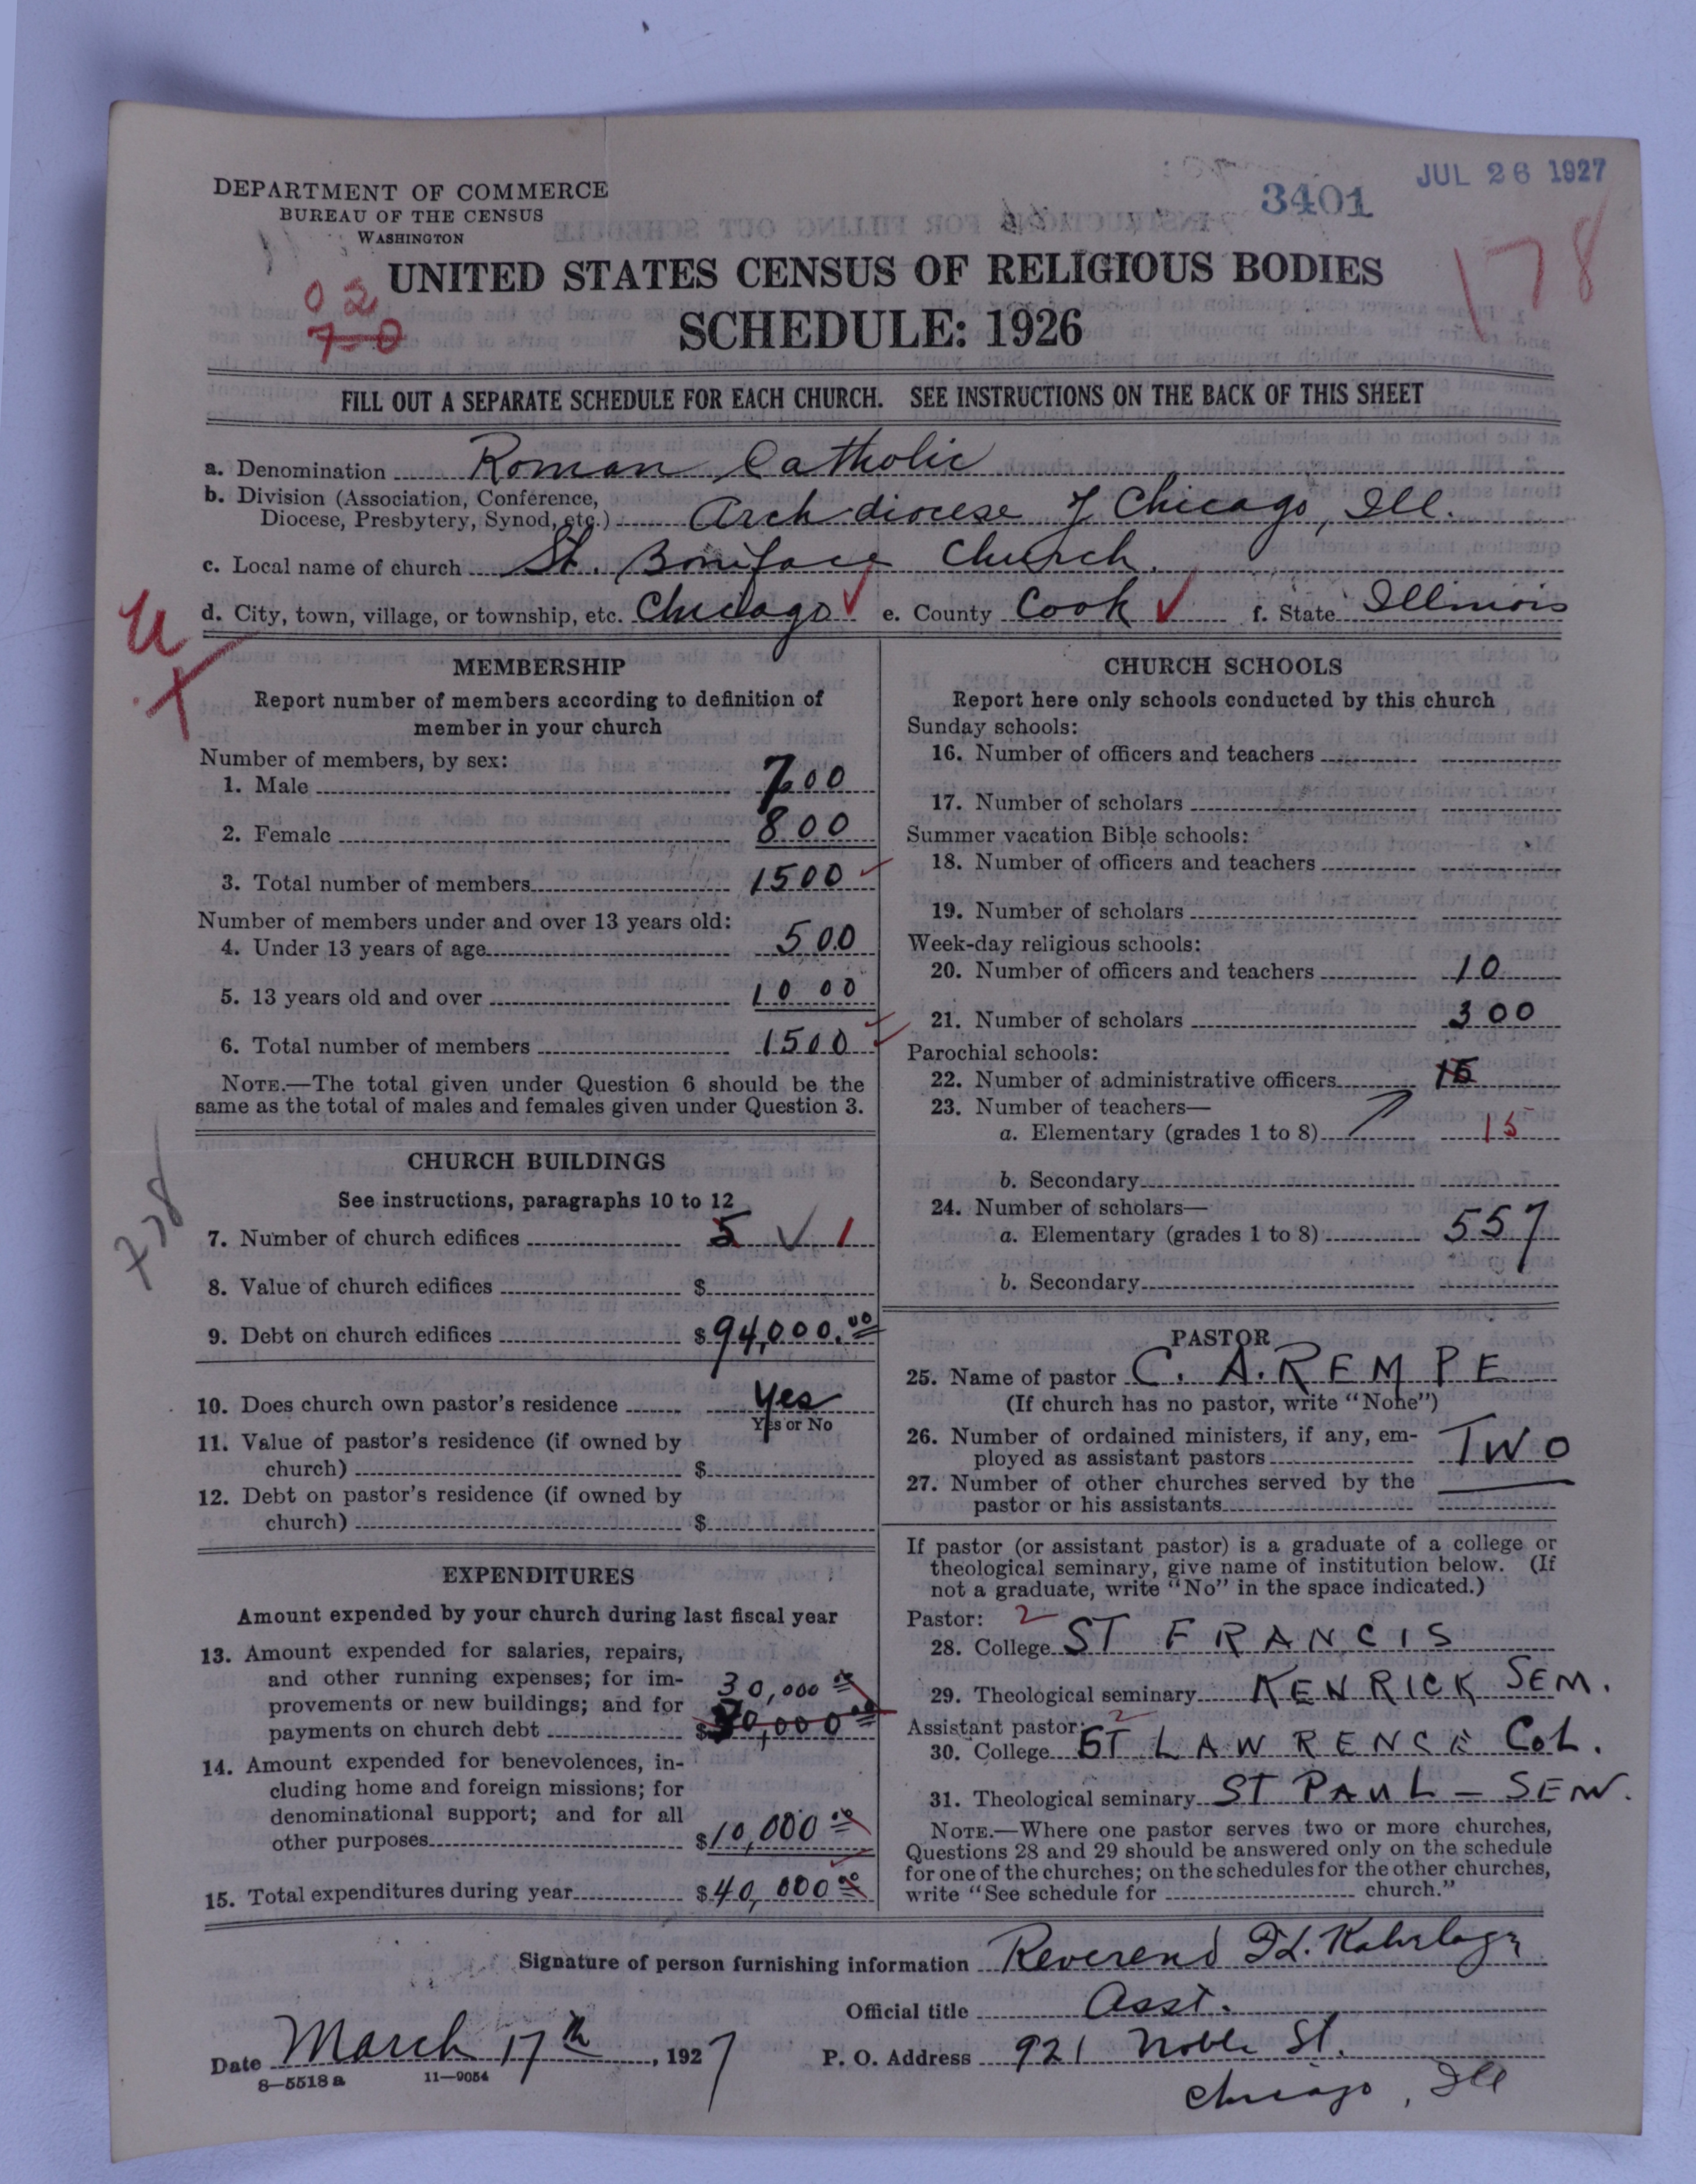 JUL 26 1927
3401
178
DEPARTMENT OF COMMERCE
BUREAU OF THE CENSUS
WASHINGTON
UNITED STATES CENSUS OF RELIGIOUS BODIES
02
70
SCHEDULE: 1926
FILL OUT A SEPARATE SCHEDULE FOR EACH CHURCH. SEE INSTRUCTIONS ON THE BACK OF THIS SHEET
a. Denomination Roman Catholic
b. Division (Association, Conference,
Diocese, Presbytery, Synod, etc.) Archdiocese of Chicago, Ill.
c. Local name of church St. Boniface Church.
d. City, town, village, or township, etc. Chicago e. County Cook f. State Illinois
U
X
MEMBERSHIP
Report number of members according to definition of
member in your church
Number of members, by sex:
1. Male 700
2. Female 800
3. Total number of members 1500
Number of members under and over 13 years old:
4. Under 13 years of age 500
5. 13 years old and over 1000
6. Total number of members 1500
NOTE.—The total given under Question 6 should be the
same as the total of males and females given under Question 3.
CHURCH BUILDINGS
See instructions, paragraphs 10 to 12
7. Number of church edifices 5 ✓ 1
8. Value of church edifices $
9. Debt on church edifices $94,000.00
10. Does church own pastor's residence Yes
Yes or No
11. Value of pastor's residence (if owned by
church) $
12. Debt on pastor's residence (if owned by
church) $
EXPENDITURES
Amount expended by your church during last fiscal year
13. Amount expended for salaries, repairs,
and other running expenses; for im-
provements or new buildings; and for 30,000 00
payments on church debt $30,000 00
14. Amount expended for benevolences, in-
cluding home and foreign missions; for
denominational support; and for all
other purposes $10,000 00
15. Total expenditures during year $40,000 00
CHURCH SCHOOLS
Report here only schools conducted by this church
Sunday schools:
16. Number of officers and teachers
17. Number of scholars
Summer vacation Bible schools:
18. Number of officers and teachers
19. Number of scholars
Week-day religious schools:
20. Number of officers and teachers 10
21. Number of scholars 300
Parochial schools:
22. Number of administrative officers 15
23. Number of teachers—
a. Elementary (grades 1 to 8) 15
b. Secondary
24. Number of scholars—
a. Elementary (grades 1 to 8) 557
b. Secondary
PASTOR
25. Name of pastor C. A. REMPE
(If church has no pastor, write "None")
26. Number of ordained ministers, if any, em-
ployed as assistant pastors TWO
27. Number of other churches served by the
pastor or his assistants
If pastor (or assistant pastor) is a graduate of a college or
theological seminary, give name of institution below. (If
not a graduate, write "No" in the space indicated.)
Pastor: 2
28. College ST FRANCIS
29. Theological seminary KENRICK SEM.
Assistant pastor: 2
30. College ST LAWRENCE COL.
31. Theological seminary ST PAUL - SEM.
NOTE.—Where one pastor serves two or more churches,
Questions 28 and 29 should be answered only on the schedule
for one of the churches; on the schedules for the other churches,
write "See schedule for church."
Signature of person furnishing information Reverend
Official title Asst.
Date March 17th, 1927 P. O. Address 921 Noble St.
Chicago, Ill
8—5518a 11—9054